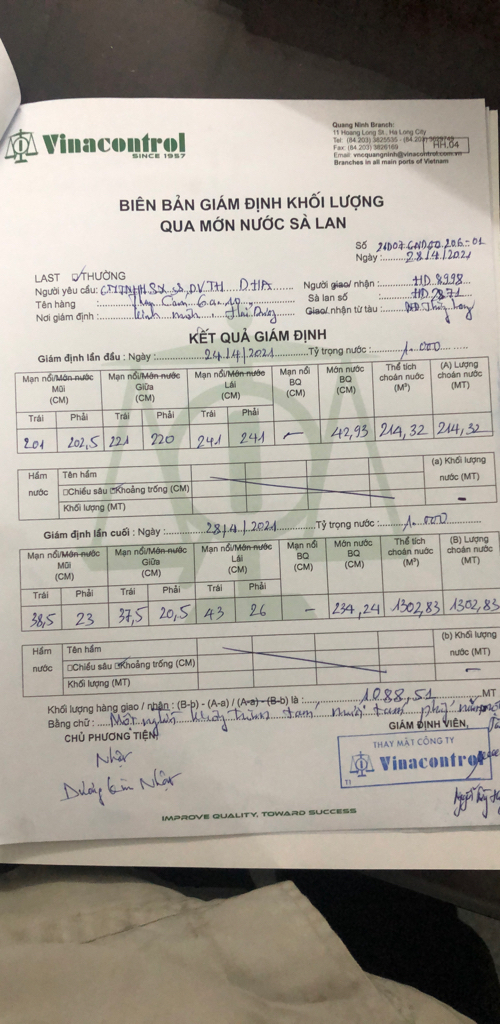 Vinacontrol
SINCE 1957
Quang Ninh Branch:
11 Hoang Long St., Ha Long City
Tel: (84.203) 3825535 - (84.203)
Fax: (84.203) 3826169
HH.04
Email: vncquangninh@vinacontrol.com.vn
Branches in all main ports of Vietnam
BIÊN BẢN GIÁM ĐỊNH KHỐI LƯỢNG
QUA MỚN NƯỚC SÀ LAN
Số
Ngày: 28/4/2021
LAST ☑THƯỜNG
Người yêu cầu: DHA
Người giao/ nhận : HD 8998
Tên hàng :
Sà lan số : HD 2871
Nơi giám định :
Giao/ nhận từ tàu :
KẾT QUẢ GIÁM ĐỊNH
Giám định lần đầu : Ngày : 24/4/2021 Tỷ trọng nước : 1.000
Mạn nổi/Món nước Mũi (CM) Mạn nổi/Món nước Giữa (CM) Mạn nổi/Món nước Lái (CM) Mạn nổi BQ (CM) Món nước BQ (CM) Thể tích choán nước (M³) (A) Lượng choán nước (MT)
Trái Phải Trái Phải Trái Phải
201 202,5 221 220 241 241 – 42,93 214,32 214,32
Hầm nước Tên hầm (a) Khối lượng nước (MT)
☐Chiều sâu ☑Khoảng trống (CM)
Khối lượng (MT) –
Giám định lần cuối : Ngày : 28/4/2021 Tỷ trọng nước : 1.000
Mạn nổi/Món nước Mũi (CM) Mạn nổi/Món nước Giữa (CM) Mạn nổi/Món nước Lái (CM) Mạn nổi BQ (CM) Món nước BQ (CM) Thể tích choán nước (M³) (B) Lượng choán nước (MT)
Trái Phải Trái Phải Trái Phải
38,5 23 37,5 20,5 43 26 – 234,24 1302,83 1302,83
Hầm nước Tên hầm (b) Khối lượng nước (MT)
☐Chiều sâu ☑Khoảng trống (CM)
Khối lượng (MT) –
Khối lượng hàng giao / nhận : (B-b) - (A-a) / (A-a) - (B-b) là : 1.088,51 MT
Bằng chữ : Một nghìn không trăm tám mươi tám phẩy năm
CHỦ PHƯƠNG TIỆN
GIÁM ĐỊNH VIÊN
THAY MẶT CÔNG TY
Vinacontrol
Nhật
Dương Nhật
IMPROVE QUALITY, TOWARD SUCCESS